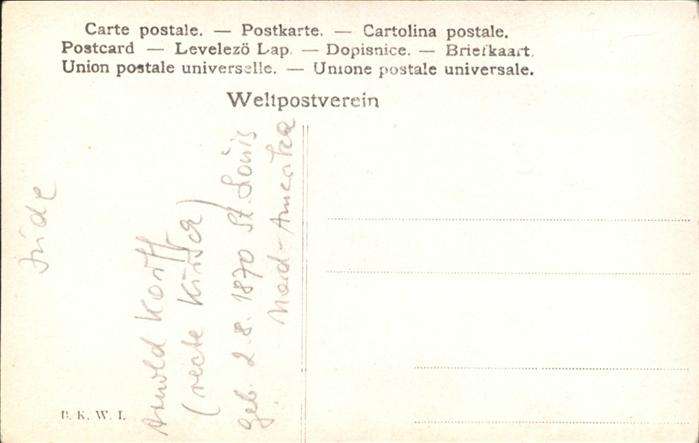 Carte postale. — Postkarte. — Cartolina postale.
Postcard — Levelező Lap. — Dopisnice. — Briefkaart.
Union postale universelle. — Unione postale universale.
Weltpostverein
Jude
Arnold Korff
(recte Kirsch)
geb. 2. 8. 1870 St. Louis
Nord-Amerika
B. K. W. I.